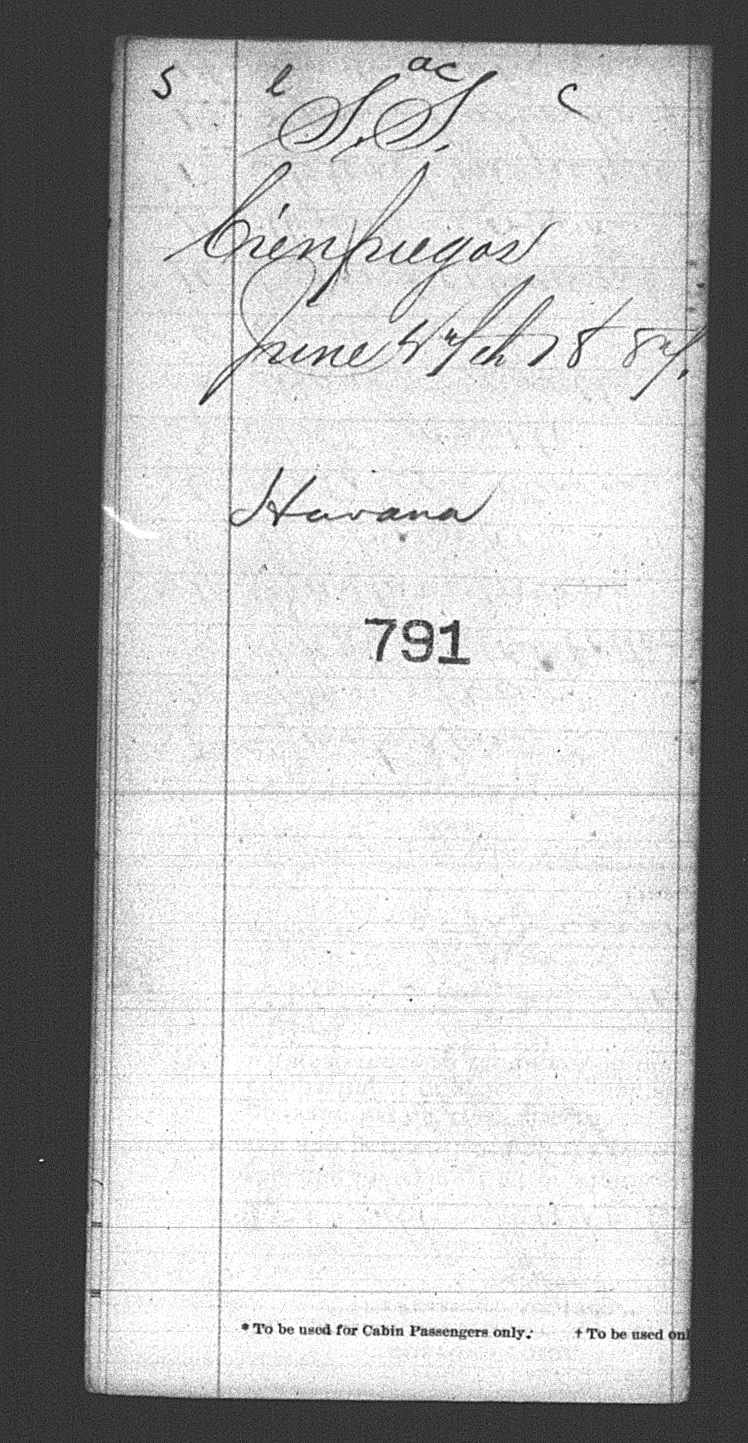 S e ac c
S.S.
Cienfuegos
June 27th 1887.
Havana
791
* To be used for Cabin Passengers only. † To be used onl